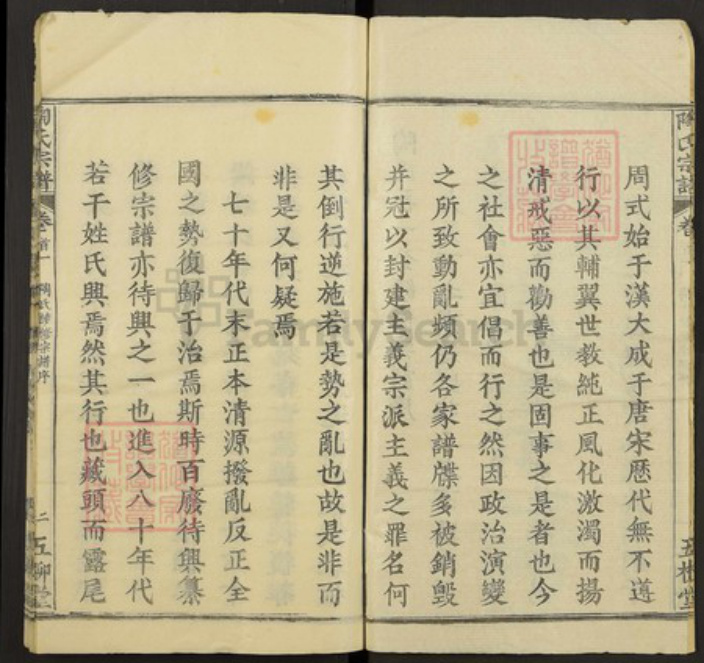 周式始于漢大成于唐宋歷代無不遵
行以其輔翼世教純正風化激濁而揚
清戒惡而勸善也是固事之是者也今
之社會亦宜倡而行之然因政治演變
之所致動亂頻仍各家譜牒多被銷毀
并冠以封建主義宗派主義之罪名何
其倒行逆施若是勢之亂也故是非而
非是又何疑焉
七十年代末正本清源撥亂反正全
國之勢復歸于治焉斯時百廢待興纂
修宗譜亦待興之一也進入八十年代
若干姓氏興焉然其行也藏頭而露尾
陶氏宗譜 卷首一 宗譜序 二 五柳堂
陶氏宗譜 卷 五柳堂
FamilySearch